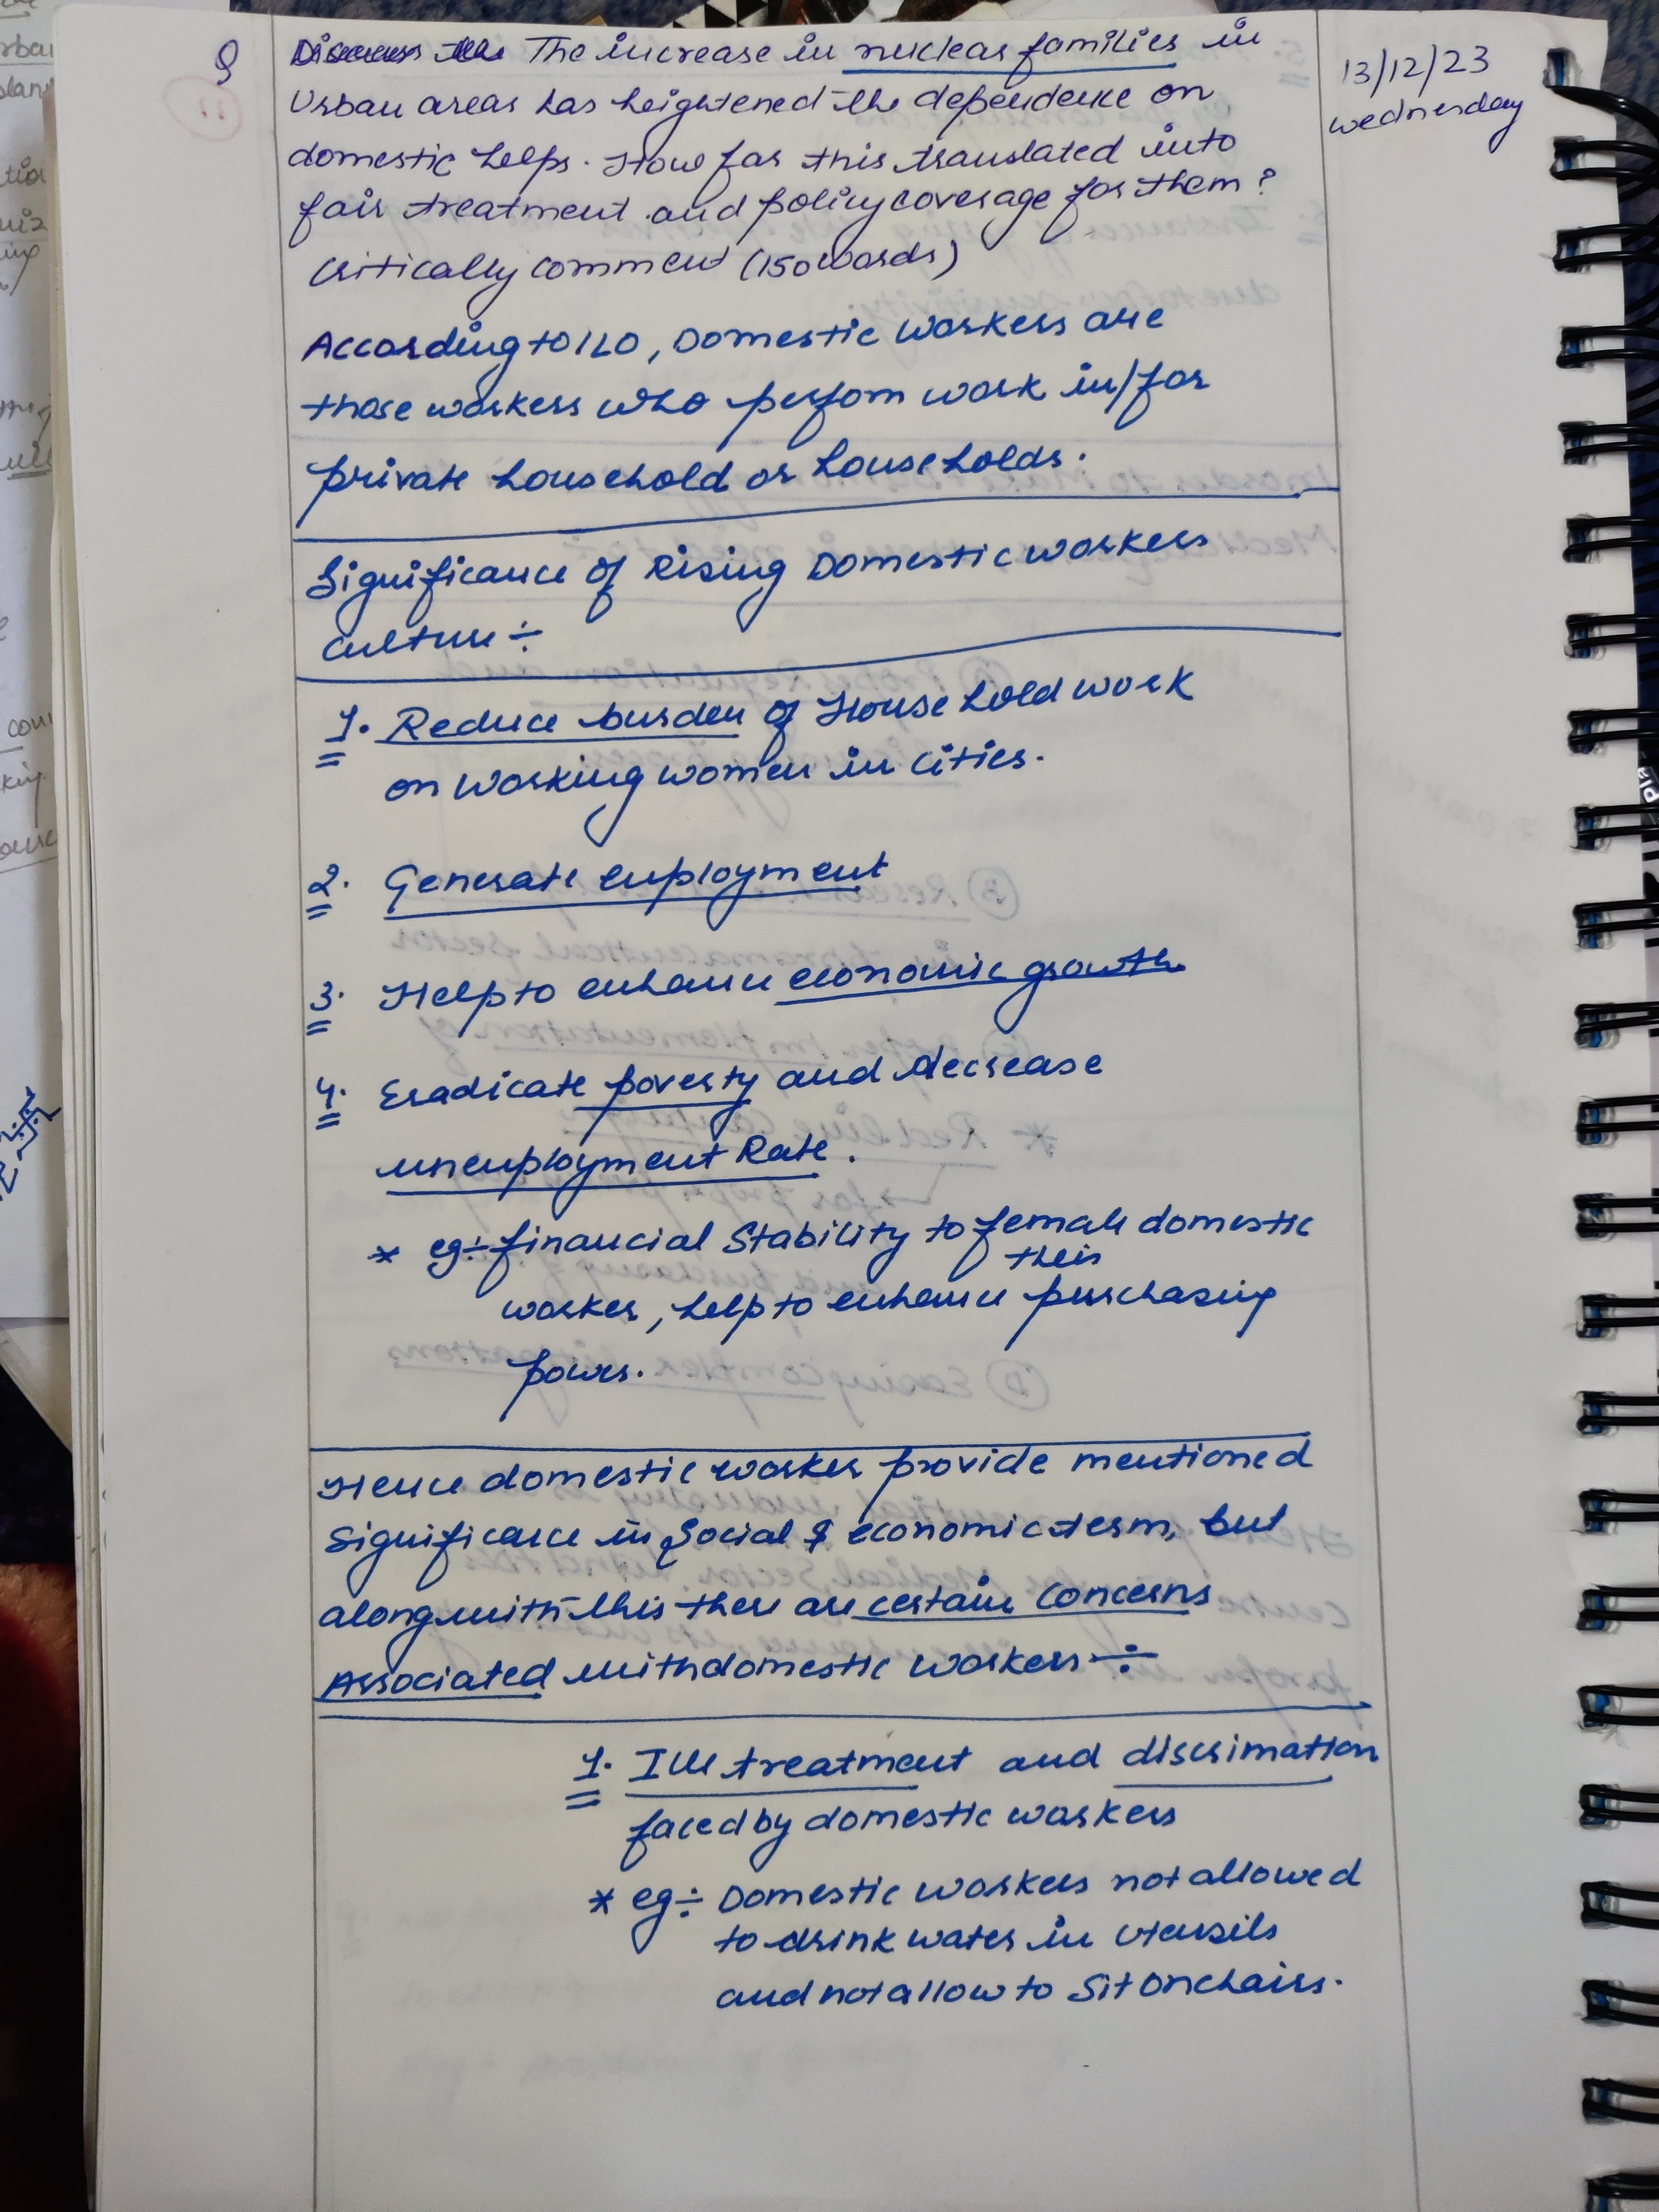 Q
The increase in nuclear families in
Urban areas has heightened the dependence on
domestic helps. How far this translated into
fair treatment and policy coverage for them?
critically comment (150 words)
13/12/23
Wednesday
According to ILO, Domestic workers are
those workers who perfom work in/for
private household or households.
Significance of Rising Domestic workers
culture ÷
1. Reduce burden of House hold work
on working women in cities.
2. Generate employment
3. Help to enhance economic growth
4. Eradicate poverty and decrease
unemployment Rate.
* eg÷ financial Stability to female domestic
worker, help to enhance their purchasing
power.
Hence domestic worker provide mentioned
Significance in Social & economic term, but
along with this there are certain concerns
Associated with domestic workers ÷
1. Ill treatment and discrimation
faced by domestic workers
* eg÷ Domestic workers not allowed
to drink water in utensils
and not allow to Sit on chairs.